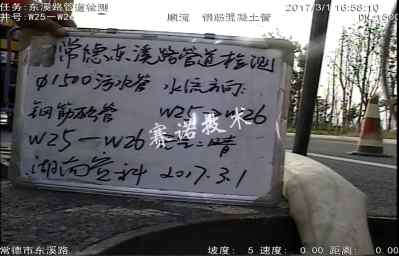 任务:东溪路管道检测 2017/3/1 16:58:10
井号:W25-W26 顺流 钢筋混凝土管 DN:1500
常德东溪路管道检测
Φ1500污水管 水流方向:
钢筋砼管 W25→W26
赛诺技术
W25-W26
湖南 科 2017.3.1
常德市东溪路 坡度: 5 速度: 0.00 距离: 0.00